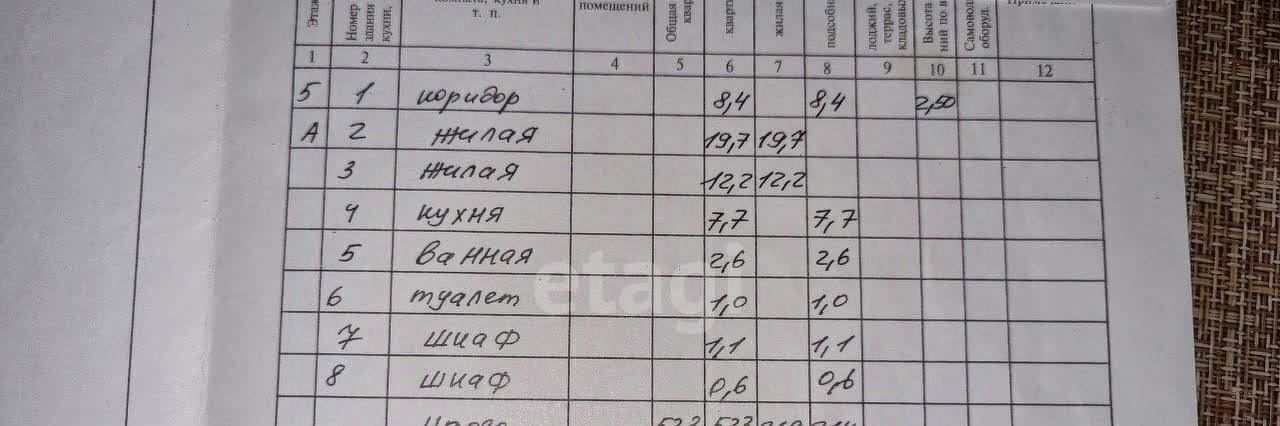 Этаж Номер здания кухни, комната, кухня и т. п. помещений Общая кварт жилая подсобн лоджий, террас, кладовых Высота ний по в Самовол оборуд.
1 2 3 4 5 6 7 8 9 10 11 12
5 1 коридор 8,4 8,4 2,50
А 2 жилая 19,7 19,7
3 жилая 12,2 12,2
4 кухня 7,7 7,7
5 ванная 2,6 2,6
6 туалет 1,0 1,0
7 шкаф 1,1 1,1
8 шкаф 0,6 0,6
etagi